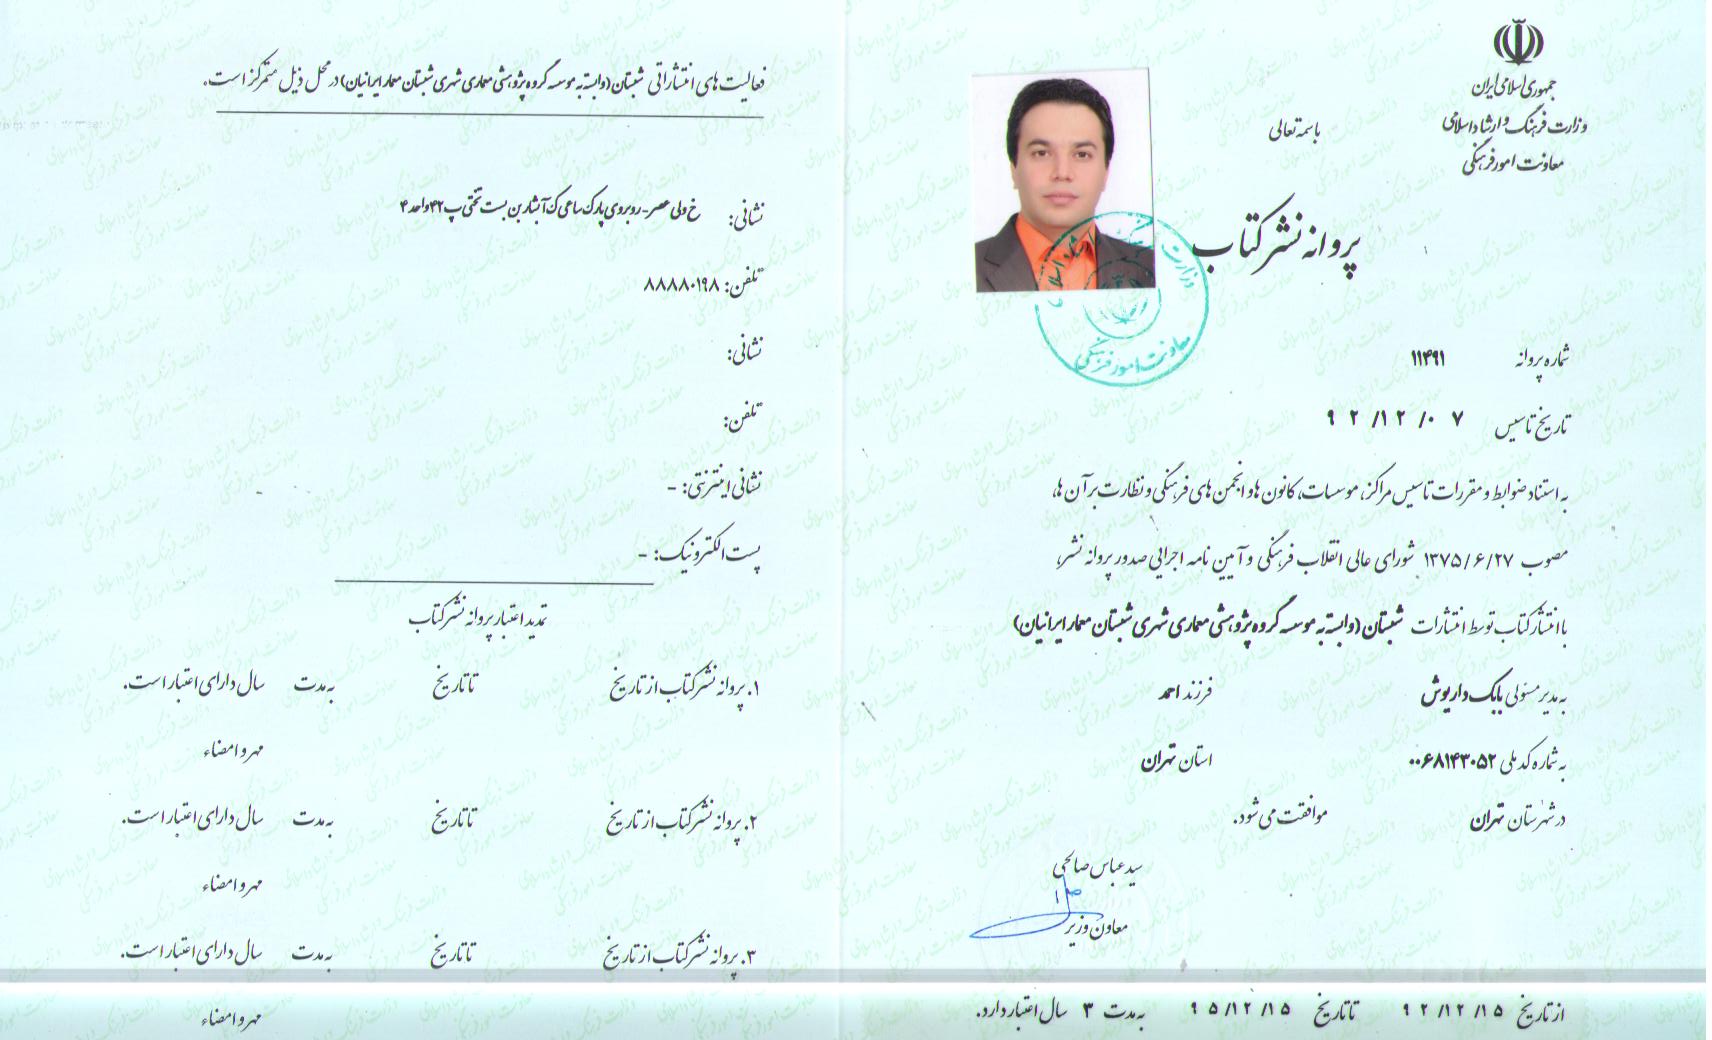 جمهوری اسلامی ایران
وزارت فرهنگ و ارشاد اسلامی
معاونت امور فرهنگی
باسمه تعالی
پروانه نشر کتاب
وزارت فرهنگ و ارشاد اسلامی
معاونت امور فرهنگی
شماره پروانه ۱۱۴۹۱
تاریخ تاسیس ۹۲/۱۲/۰۷
به استناد ضوابط و مقررات تاسیس مراکز، موسسات، کانون ها و انجمن های فرهنگی و نظارت بر آن ها،
مصوب ۱۳۷۵/۶/۲۷ شورای عالی انقلاب فرهنگی و آیین نامه اجرایی صدور پروانه نشر،
با انتشار کتاب توسط انتشارات شبستان (وابسته به موسسه گروه پژوهشی معماری شهری شبستان معمار ایرانیان)
به مدیر مسئولی بابک داریوش فرزند احمد
به شماره کد ملی ۰۰۶۸۱۴۳۰۵۲ استان تهران
در شهرستان تهران موافقت می شود.
سید عباس صالحی
معاون وزیر
از تاریخ ۹۲/۱۲/۱۵ تا تاریخ ۹۵/۱۲/۱۵ به مدت ۳ سال اعتبار دارد.
فعالیت های انتشاراتی شبستان (وابسته به موسسه گروه پژوهشی معماری شهری شبستان معمار ایرانیان) در محل ذیل متمرکز است.
نشانی: خ ولی عصر - روبروی پارک ساعی ک آبشار بن بست تختی پ ۴۲ واحد ۴
تلفن: ۸۸۸۸۰۱۹۸
نشانی:
تلفن:
نشانی اینترنتی: -
پست الکترونیک: -
تمدید اعتبار پروانه نشر کتاب
۱. پروانه نشر کتاب از تاریخ تا تاریخ به مدت سال دارای اعتبار است.
مهر و امضاء
۲. پروانه نشر کتاب از تاریخ تا تاریخ به مدت سال دارای اعتبار است.
مهر و امضاء
۳. پروانه نشر کتاب از تاریخ تا تاریخ به مدت سال دارای اعتبار است.
مهر و امضاء